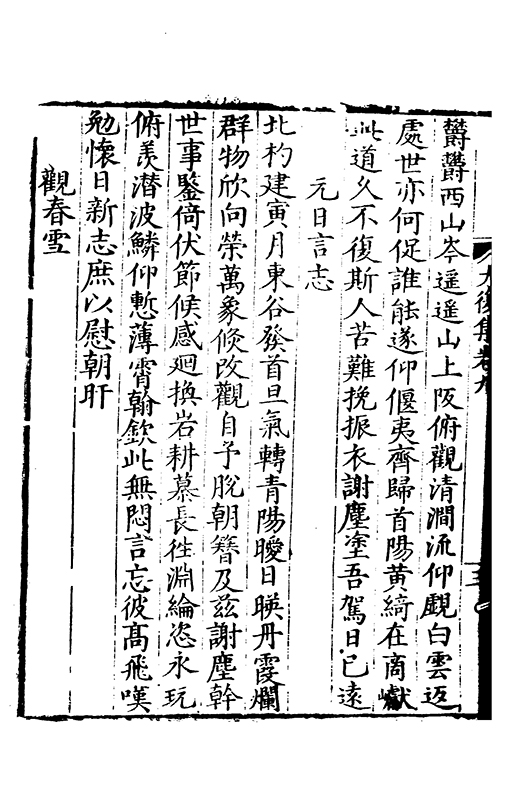 欝欝西山岑遥遥山上阪俯觀清澗流仰覷白雲返
處世亦何促誰能遂仰偃夷齊歸首陽黃綺在商巘
此道久不復斯人苦難挽振衣謝塵塗吾駕日已遠
元日言志
北杓建寅月東谷發首旦氣轉青陽曖日暎丹霞爛
群物欣向榮萬象倐改觀自予脫朝簪及茲謝塵幹
世事鑒倚伏節候感廻換岩耕慕長徃淵綸恣永玩
俯羨潜波鱗仰慙薄霄翰欽此無悶言忘彼髙飛嘆
勉懷日新志庶以慰朝旰
觀春雪
大復集卷九